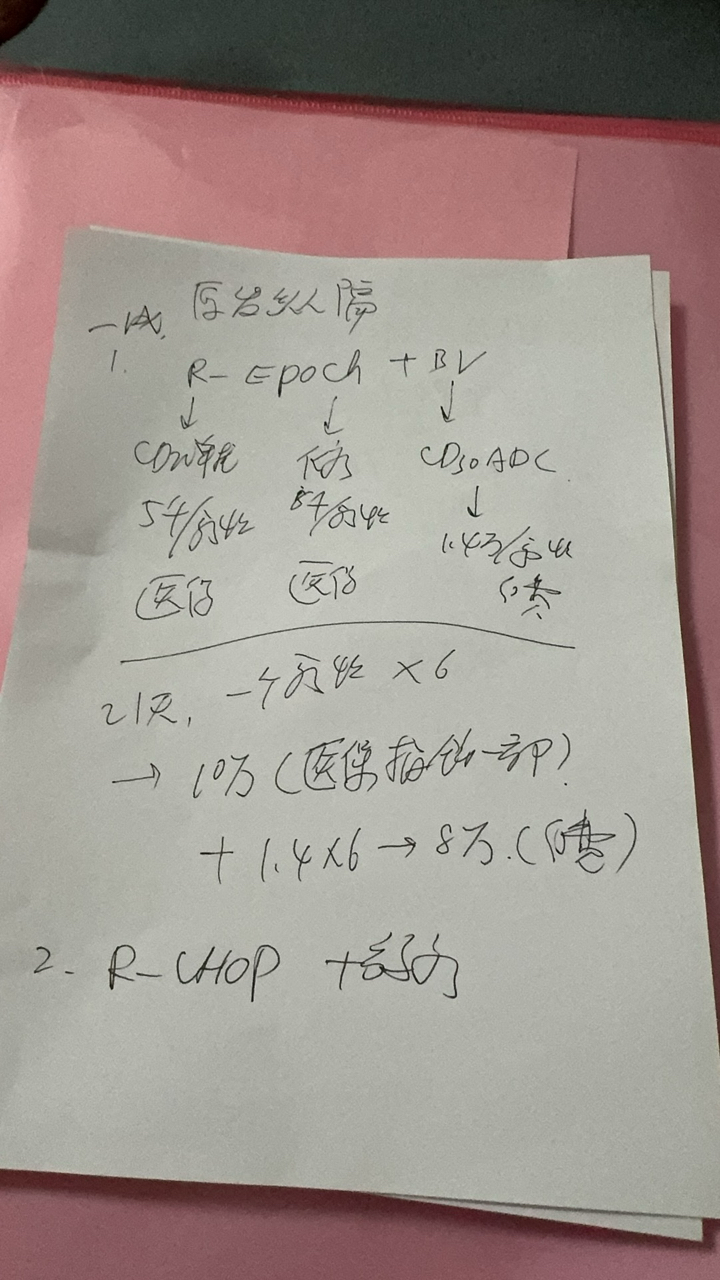 原发纵隔
一线.
1. R-Epoch + BV
↓ ↓ ↓
CD20单抗 化疗 CD30 ADC
5千/疗程 5千/疗程 ↓
1.4万/疗程
医保 医保 自费
21天, 一个疗程 ×6
→ 10万 (医保报销一部)
+ 1.4×6 → 8万. (自费)
2. R-CHOP +放疗